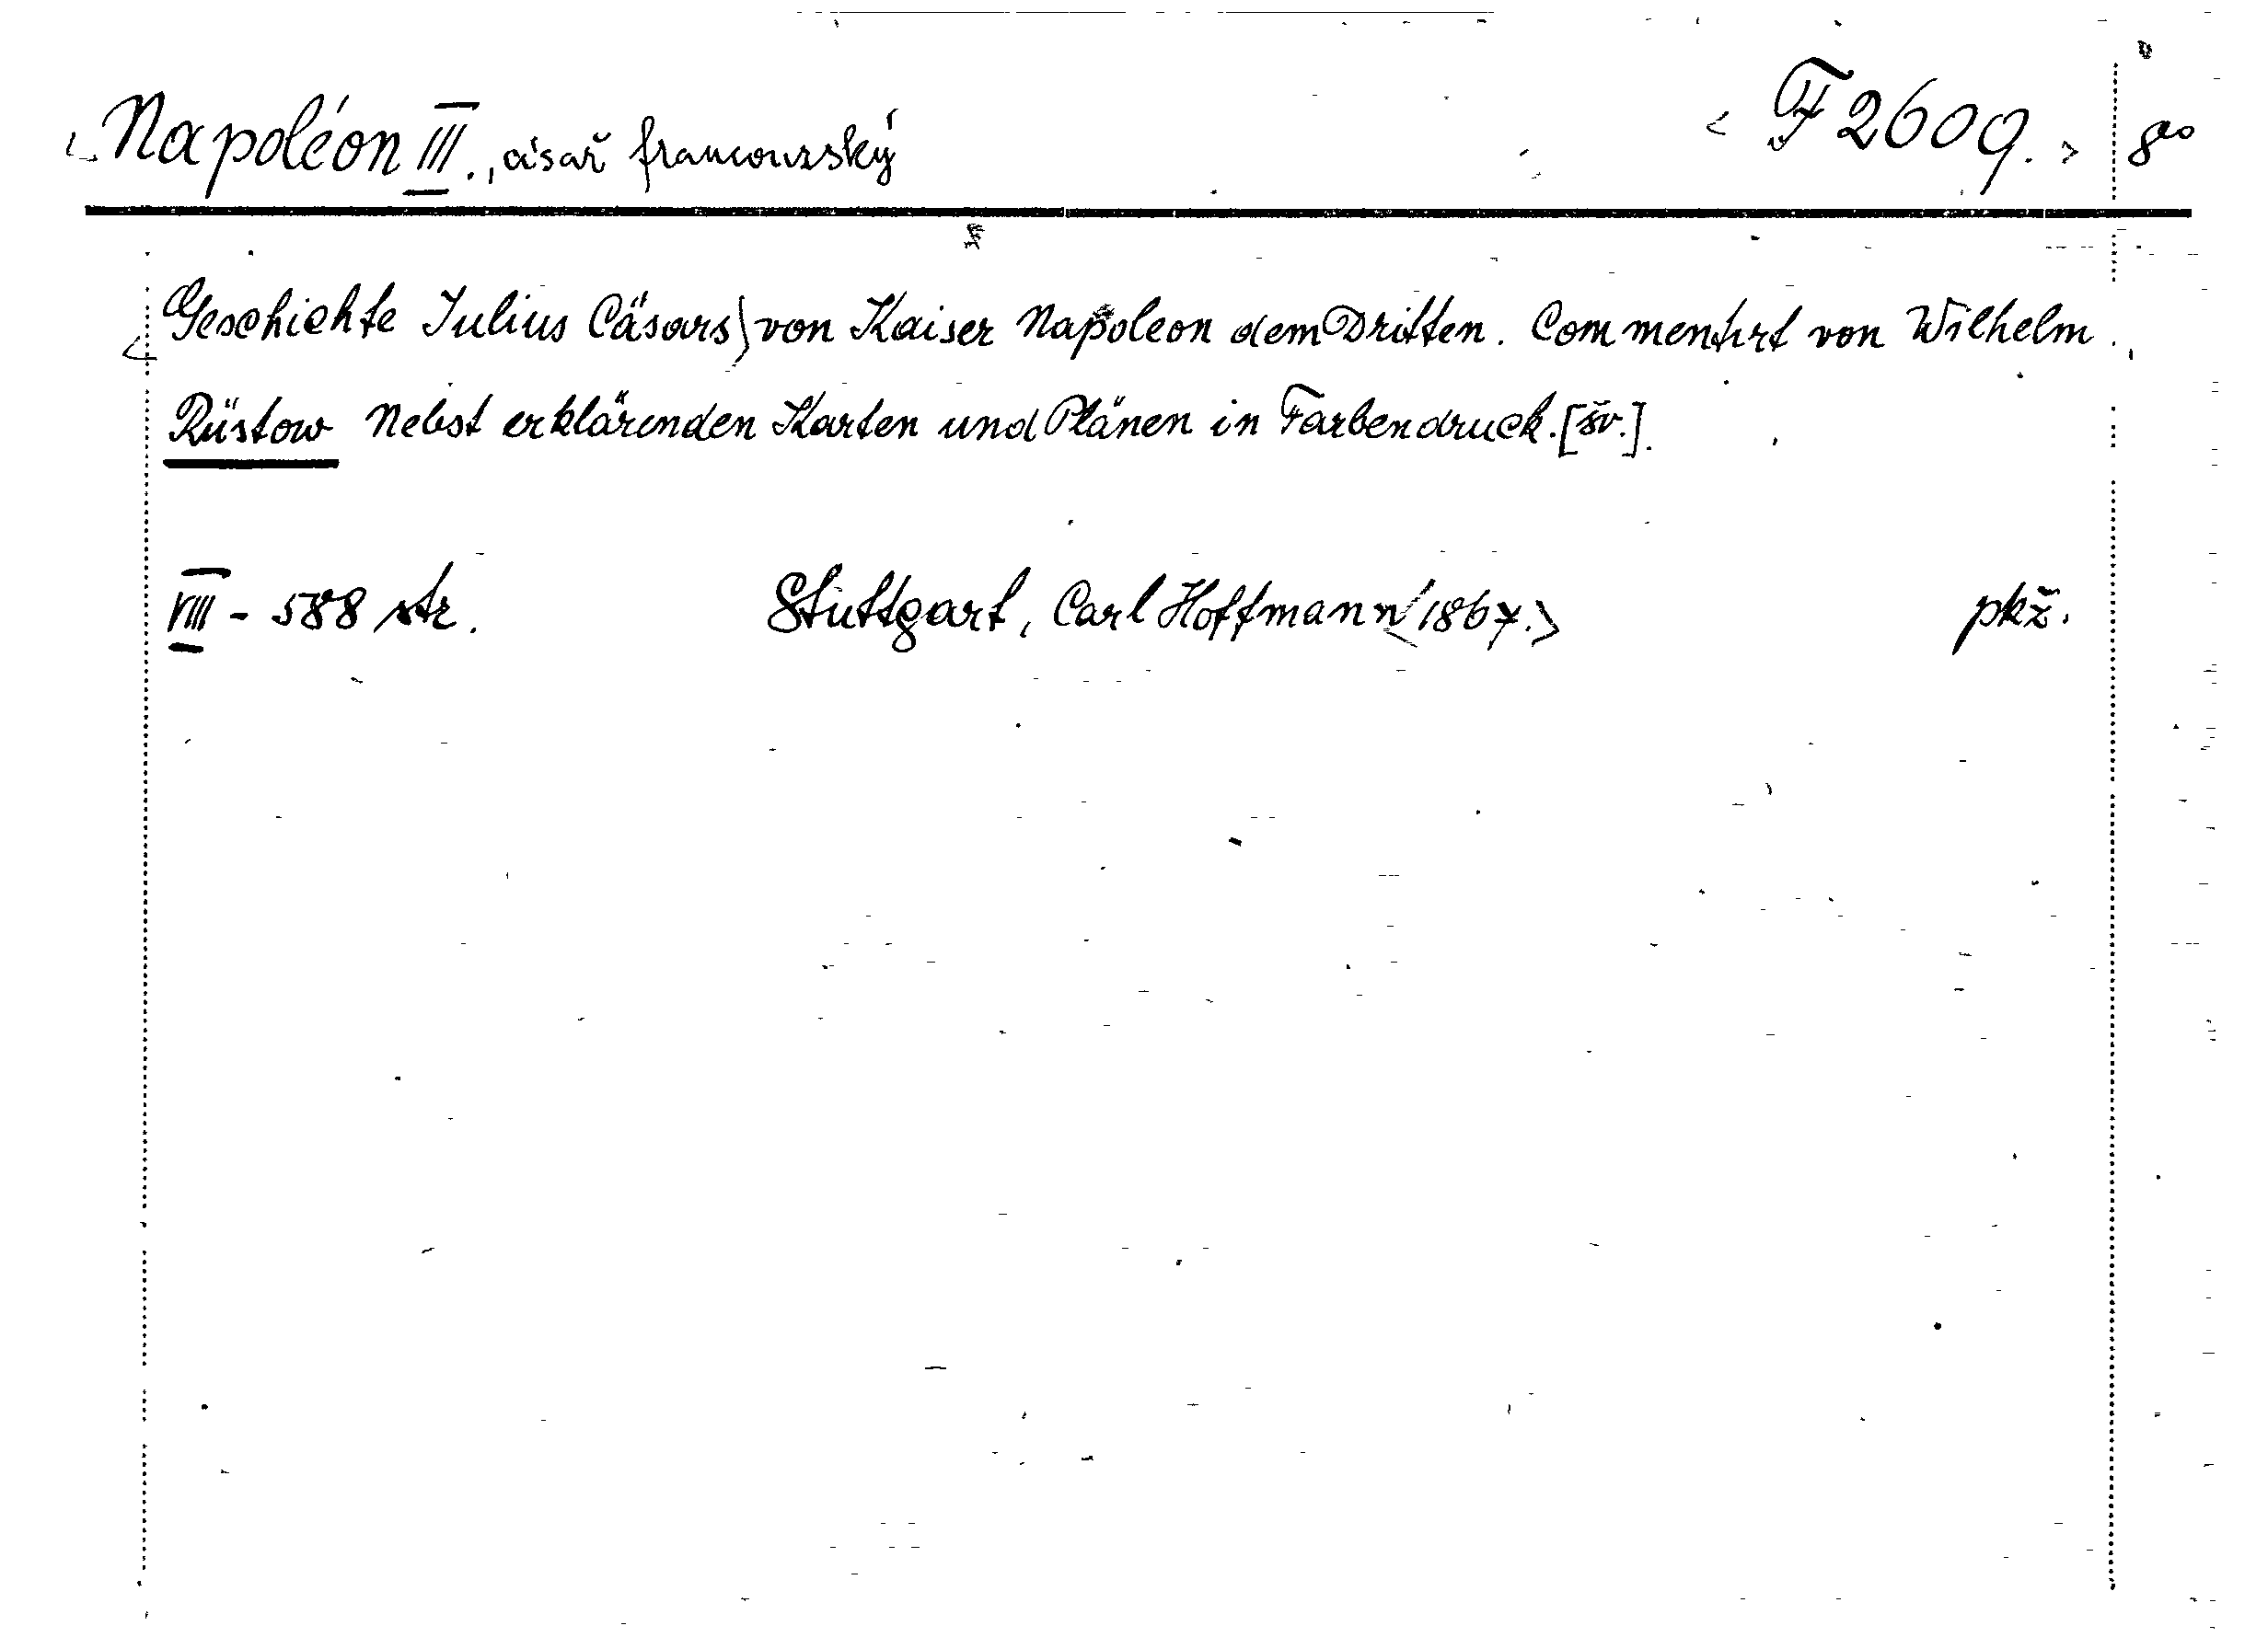 Napoléon III., císař francouzský <F 2609.> 8°
<Geschichte Julius Cäsars> von Kaiser Napoleon dem Dritten. Commentirt von Wilhelm
Rüstow Nebst erklärenden Karten und Plänen in Farbendruck. [šv.].
VIII - 588 str. Stuttgart, Carl Hoffmann <1867.> pkž.